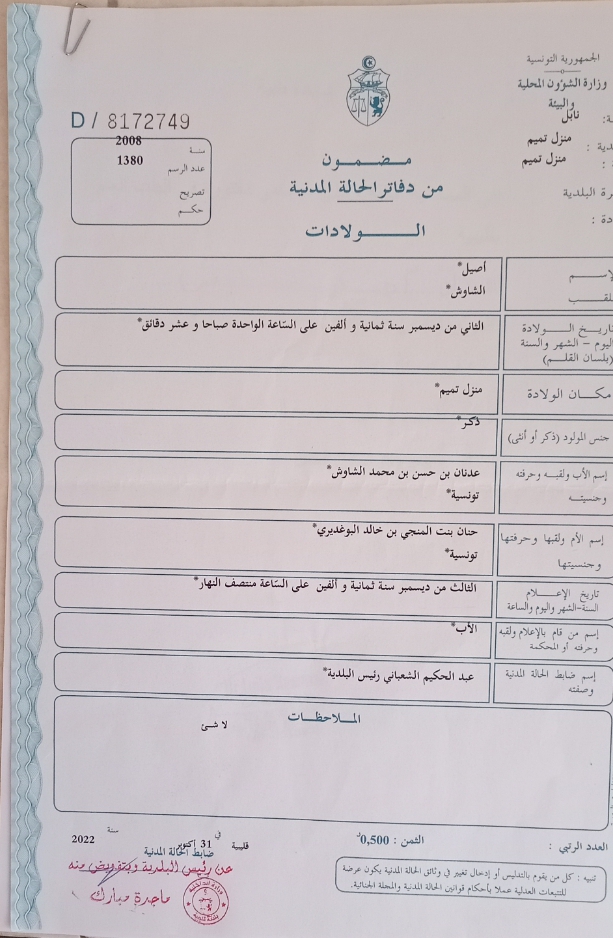 الجمهورية التونسية
وزارة الشؤون المحلية
والبيئة
نابل
منزل تميم
منزل تميم
D / 8172749
سنة 2008
عدد الرسم 1380
تصريح
حكم
مضمون
من دفاتر الحالة المدنية
الولادات
أصيل*
الشاوش*
تاريخ الولادة
اليوم - الشهر والسنة
(بلسان القلم)
الثاني من ديسمبر سنة ثمانية و ألفين على السّاعة الواحدة صباحا و عشر دقائق*
مكان الولادة
منزل تميم*
جنس المولود (ذكر أو أنثى)
ذكر*
إسم الأب ولقبه وحرفته
وجنسيته
عدنان بن حسن بن محمد الشاوش*
تونسية*
إسم الأم ولقبها وحرفتها
وجنسيتها
حنان بنت المنجي بن خالد البوغديري*
تونسية*
تاريخ الإعلام
السنة-الشهر واليوم والساعة
الثالث من ديسمبر سنة ثمانية و ألفين على السّاعة منتصف النهار*
إسم من قام بالإعلام ولقبه
وحرفته أو المحكمة
الأب*
إسم ضابط الحالة المدنية
وصفته
عبد الحكيم الشعباني رئيس البلدية*
الملاحظات
لا شئ
العدد الرتبي :
الثمن : 0,500د
قليبية في 31 أكتوبر سنة 2022
ضابط الحالة المدنية
عن رئيس البلدية وبتفويض منه
ماجدة مبارك
تنبيه : كل من يقوم بالتدليس أو إدخال تغيير في وثائق الحالة المدنية يكون عرضة
للتتبعات العدلية عملا بأحكام قوانين الحالة المدنية والمجلة الجنائية.